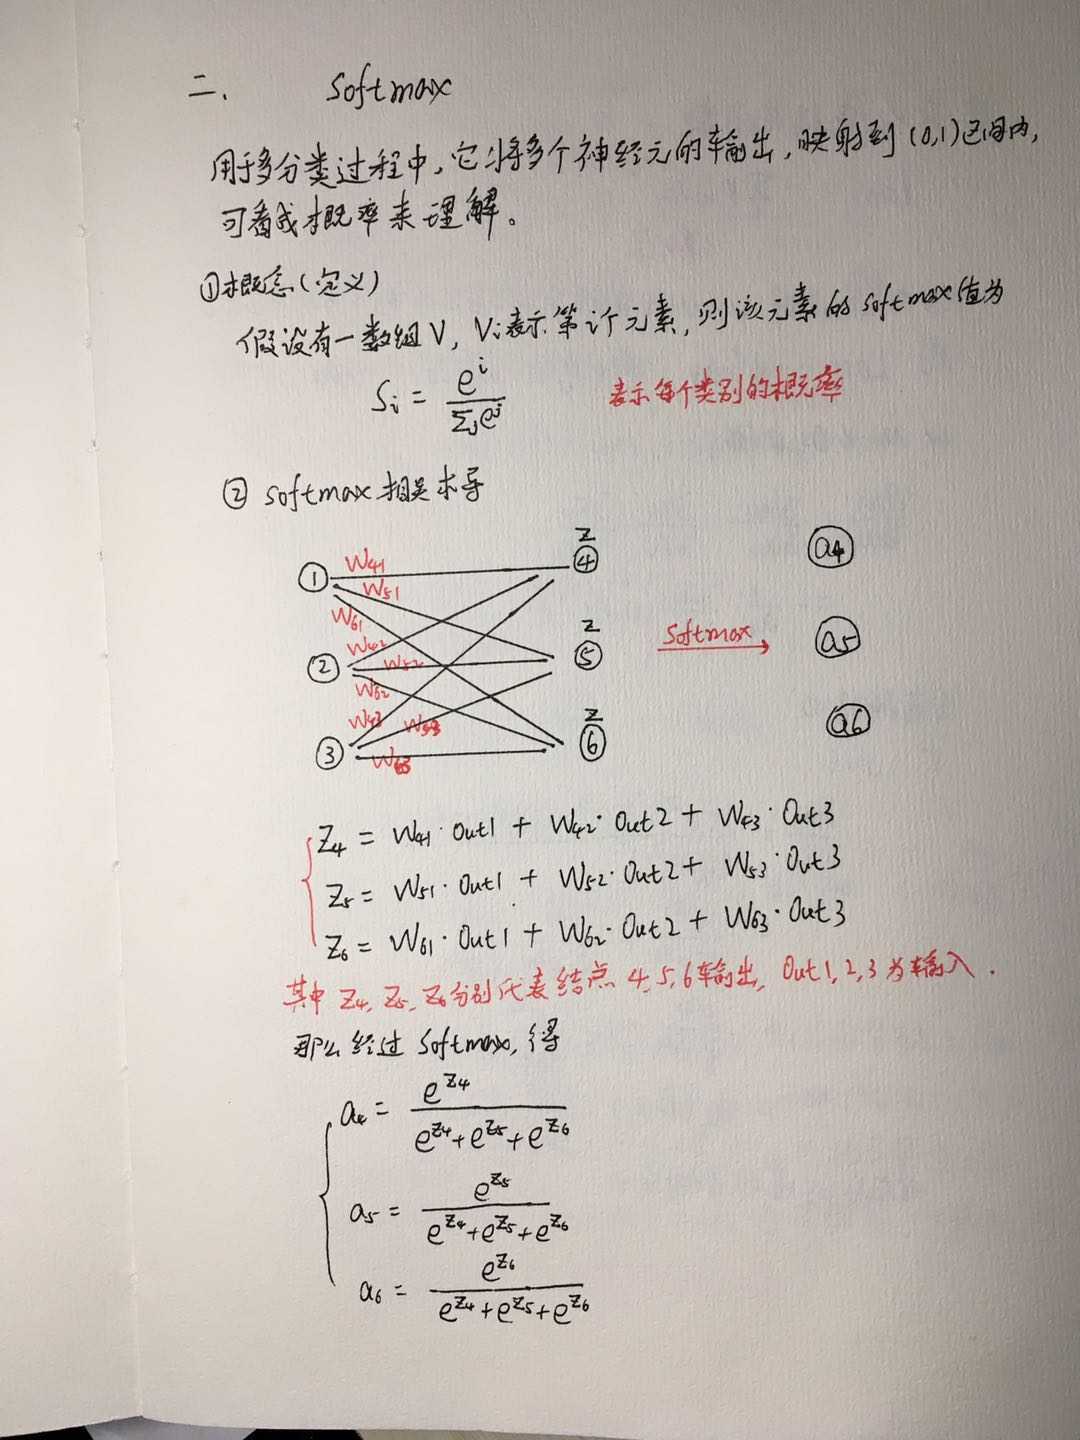 二、 Softmax
用于多分类过程中,它将多个神经元的输出,映射到(0,1)区间内,
可看成概率来理解。
①概念(定义)
假设有一数组V,Vi表示第i个元素,则该元素的softmax值为
Si = e^i / Σj e^j 表示每个类别的概率
② softmax相关求导
① W41 Z ④ a4
W51
W61 Z
② W42 W52 ⑤ Softmax a5
W62
W43 W53 Z
③ W63 ⑥ a6
Z4 = W41·Out1 + W42·Out2 + W43·Out3
Z5 = W51·Out1 + W52·Out2 + W53·Out3
Z6 = W61·Out1 + W62·Out2 + W63·Out3
其中 Z4, Z5, Z6分别代表结点 4,5,6输出, Out1,2,3为输入.
那么经过 Softmax,得
a4 = e^Z4 / e^Z4+e^Z5+e^Z6
a5 = e^Z5 / e^Z4+e^Z5+e^Z6
a6 = e^Z6 / e^Z4+e^Z5+e^Z6